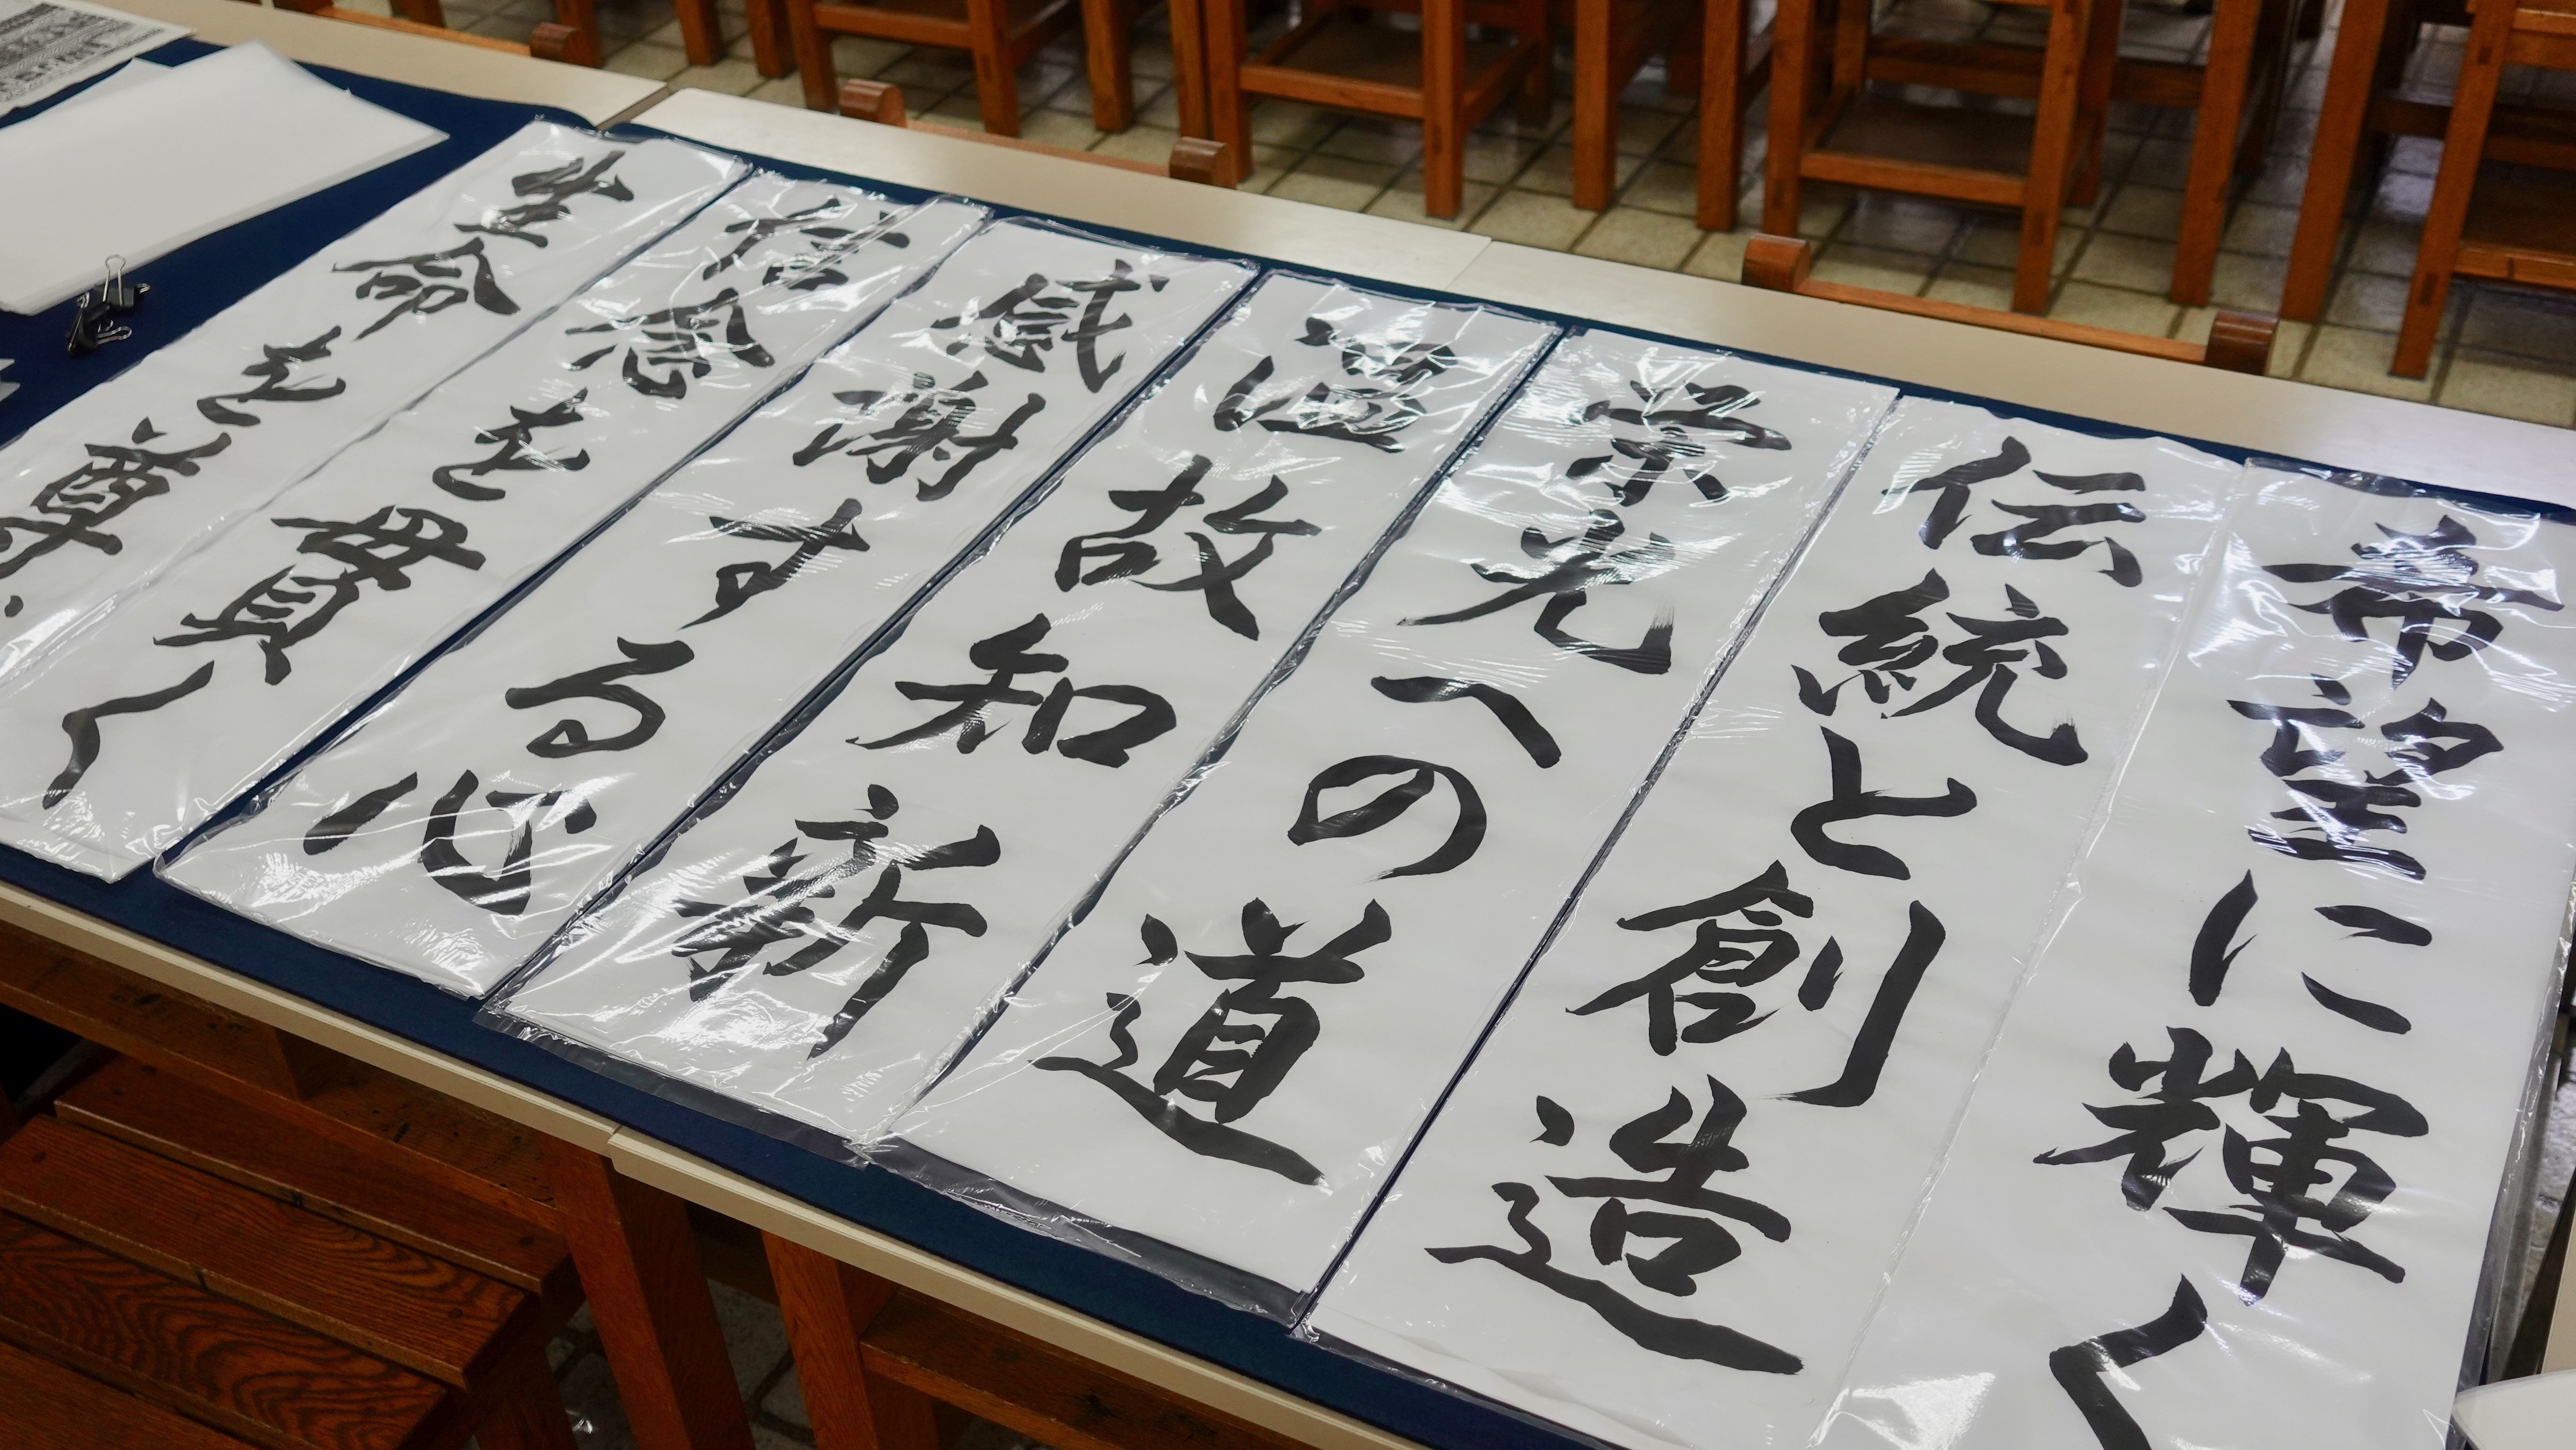 希望に輝く
伝統と創造
栄光への道
温故知新
感謝する心
信念を貫く
生命を尊